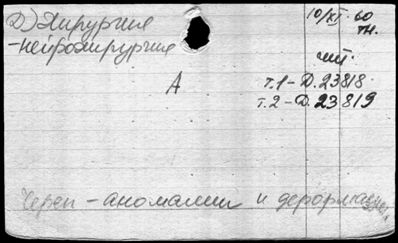 Д) Хирургия
-нейрохирургия
10/XI 60
тн.
чит.
А
т.1-Д.23818
т.2-Д.23819
Череп-аномалии и деформации